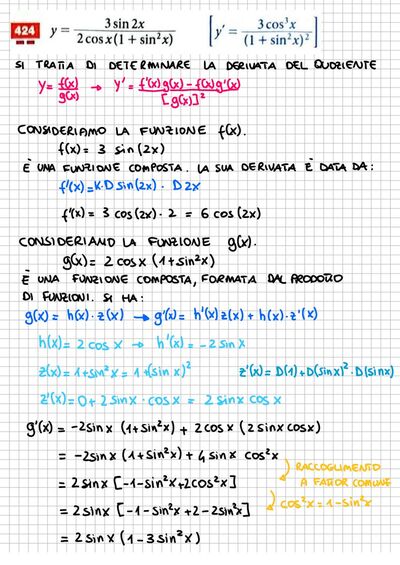 424 y = 3 sin 2x / 2 cos x(1 + sin²x) [y' = 3 cos³x / (1 + sin²x)²]
SI TRATTA DI DETERMINARE LA DERIVATA DEL QUOZIENTE
y = f(x)/g(x) → y' = f'(x)g(x) - f(x)g'(x) / [g(x)]²
CONSIDERIAMO LA FUNZIONE f(x).
f(x) = 3 sin(2x)
È UNA FUNZIONE COMPOSTA. LA SUA DERIVATA È DATA DA:
f'(x) = K·D sin(2x) · D 2x
f'(x) = 3 cos(2x) · 2 = 6 cos(2x)
CONSIDERIAMO LA FUNZIONE g(x).
g(x) = 2 cosx (1+sin²x)
È UNA FUNZIONE COMPOSTA, FORMATA DAL PRODOTTO
DI FUNZIONI. SI HA:
g(x) = h(x) · z(x) → g'(x) = h'(x) z(x) + h(x) · z'(x)
h(x) = 2 cos x → h'(x) = -2 sin x
z(x) = 1+sin²x = 1+(sin x)² z'(x) = D(1) + D(sin x)² · D(sin x)
z'(x) = 0 + 2 sin x · cos x = 2 sin x cos x
g'(x) = -2sin x (1+sin²x) + 2 cos x (2 sin x cos x)
= -2sin x (1+sin²x) + 4 sin x cos²x
RACCOGLIMENTO
A FATTOR COMUNE
= 2 sin x [-1-sin²x+2cos²x]
cos²x = 1-sin²x
= 2 sin x [-1-sin²x+2-2sin²x]
= 2 sin x (1-3sin²x)